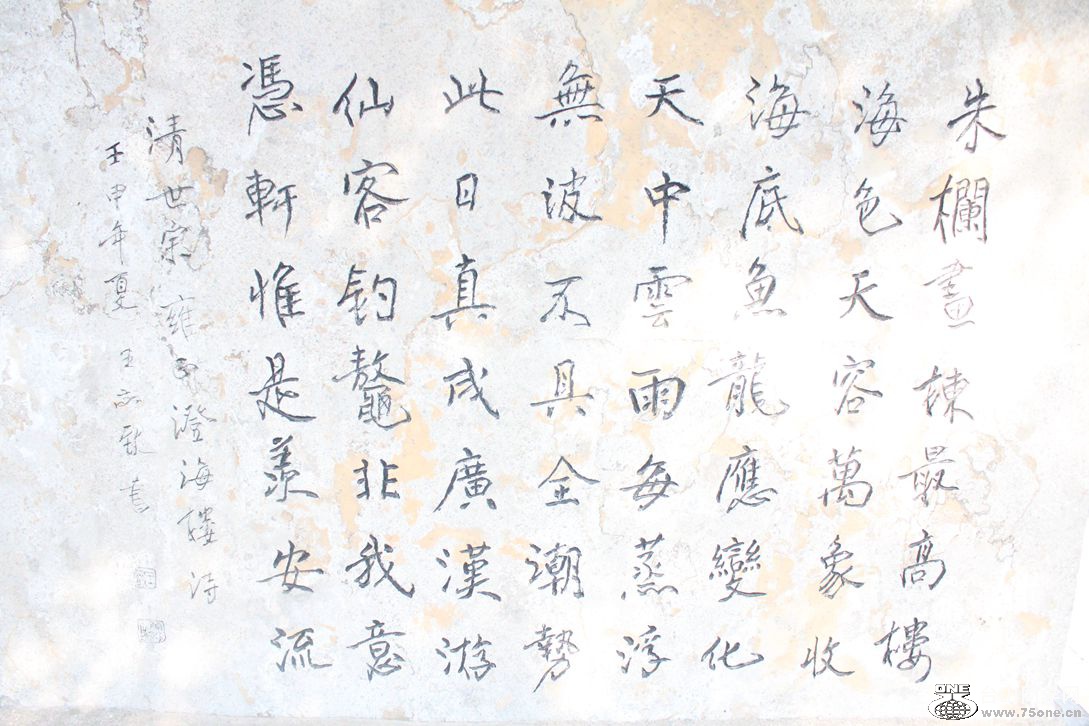 朱欄畫棟最高樓
海色天容萬象收
海底魚龍應變化
天中雲雨每蒸浮
無波不具全潮勢
此日真成廣漢游
仙客釣鰲非我意
憑軒惟是羨安流
清世宗雍正澄海樓詩
壬申年夏 王 書
ONE
www.75one.cn